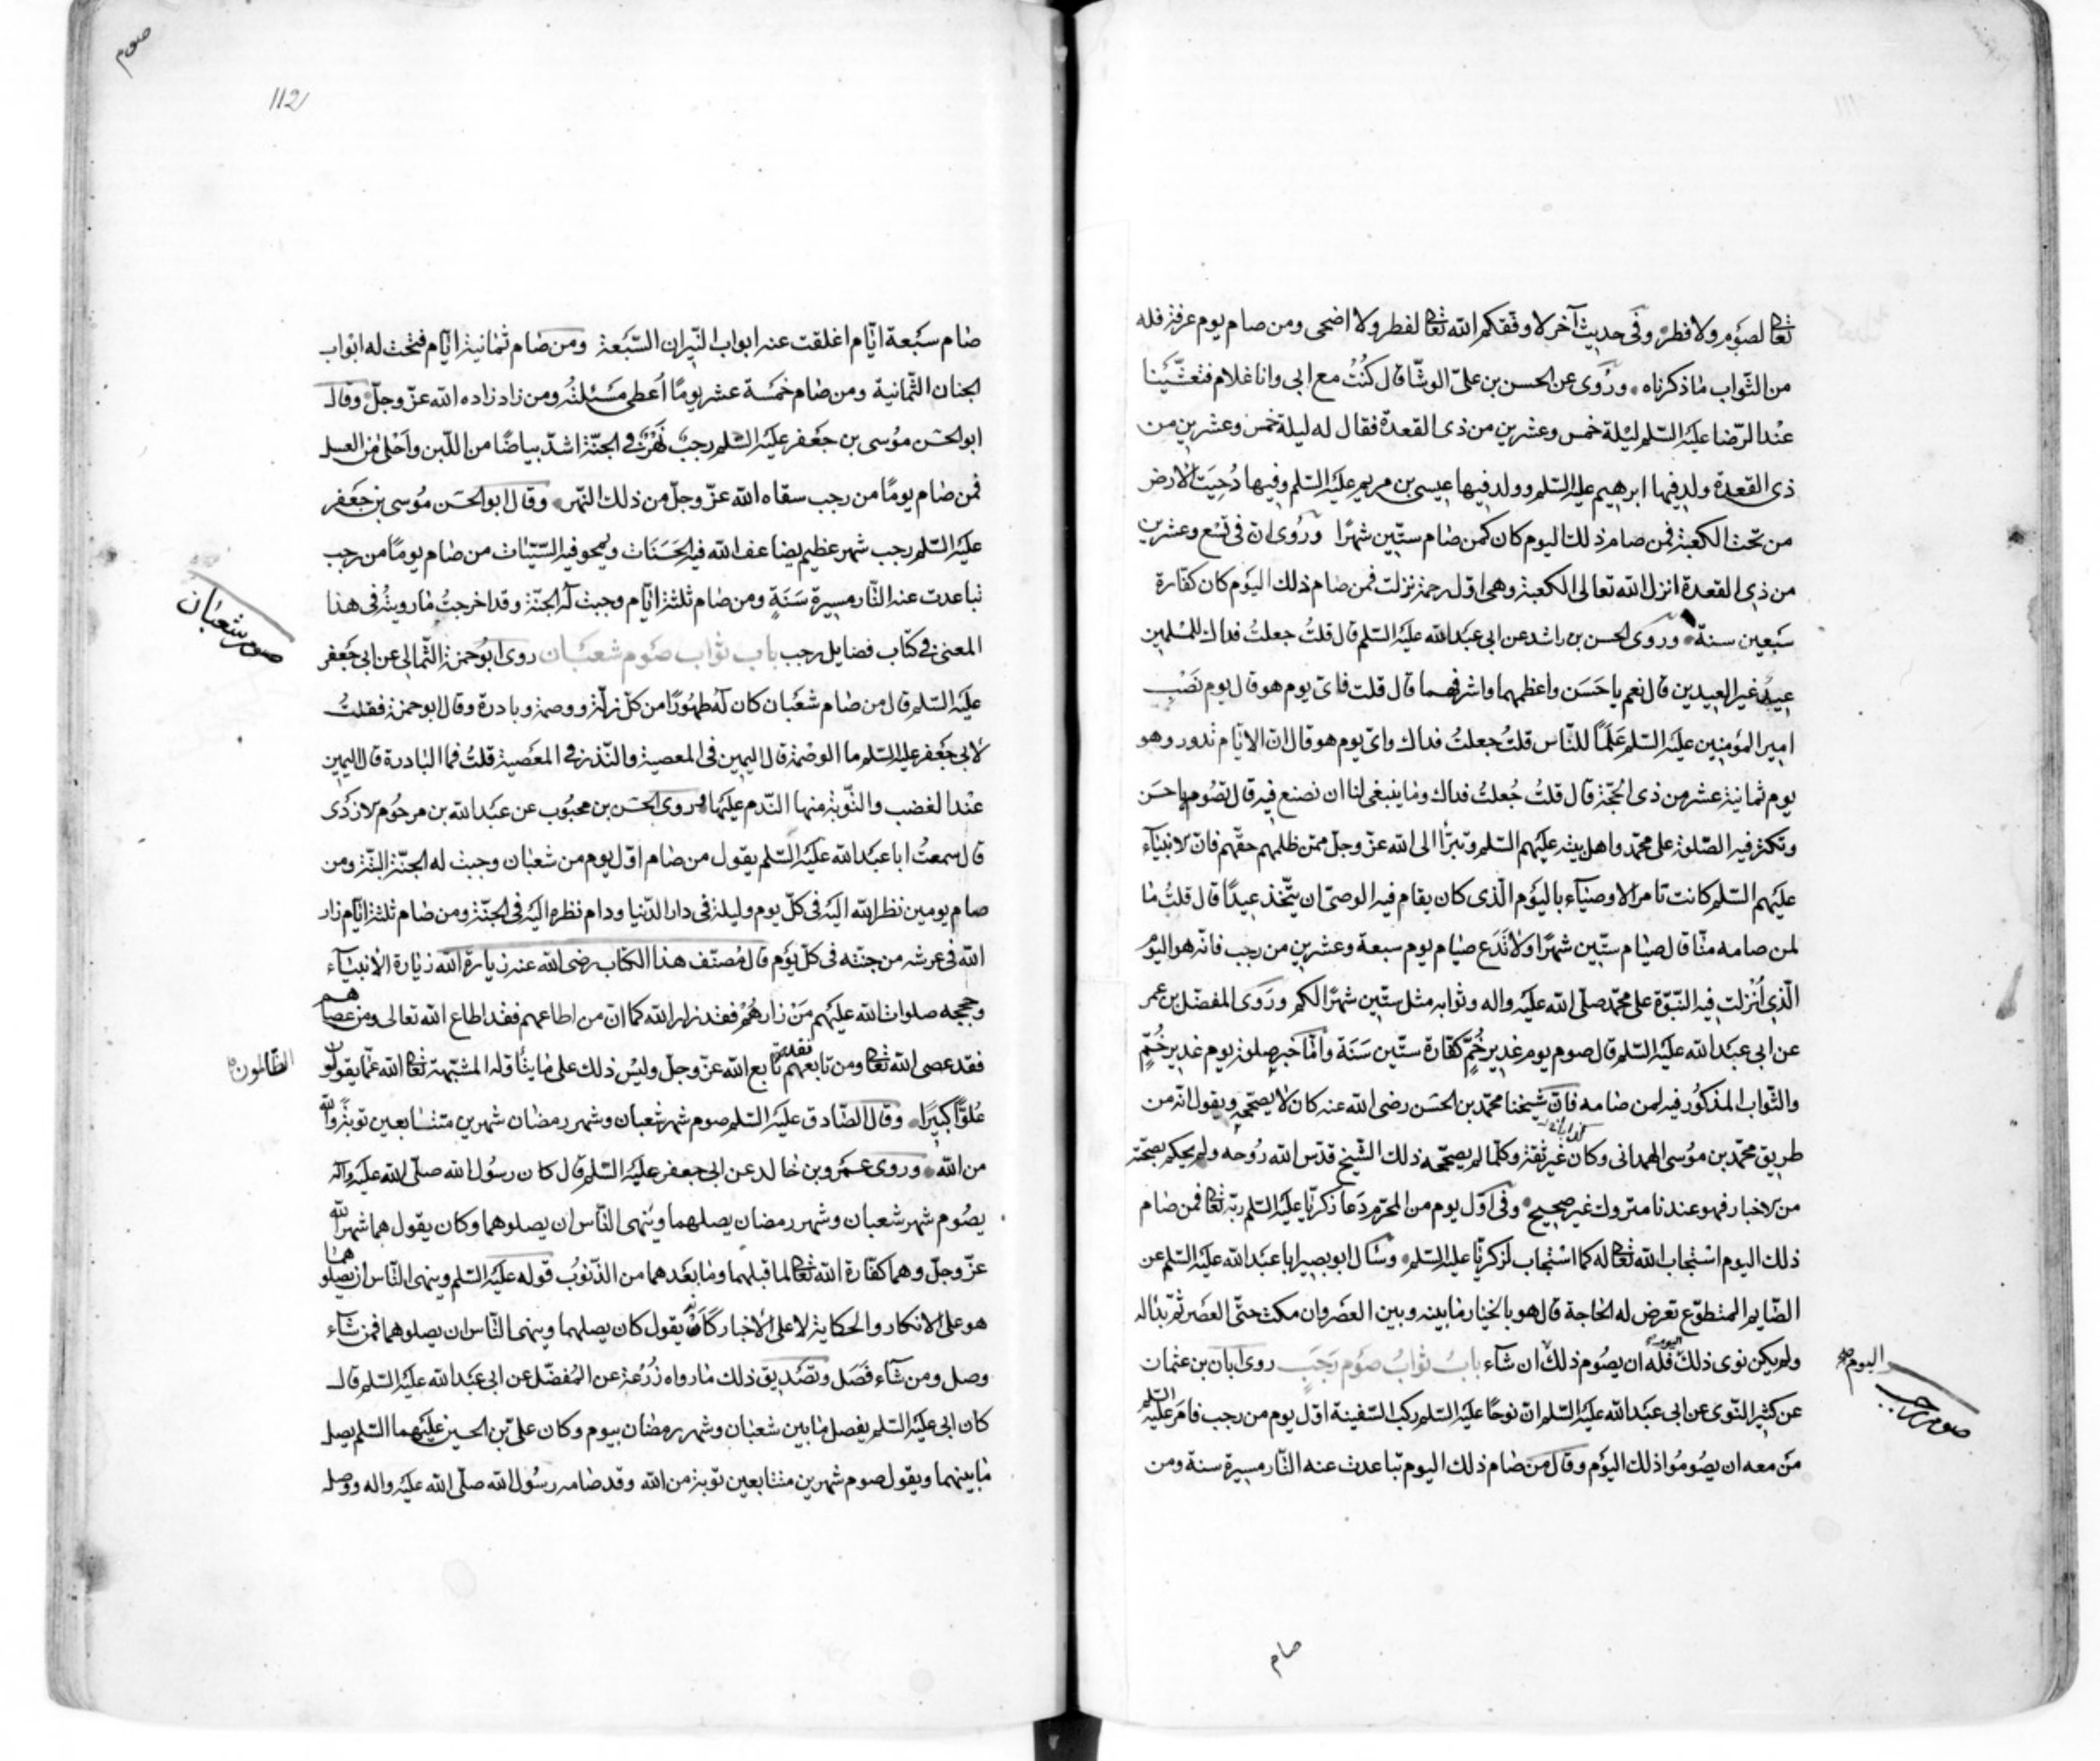 تعالى لصوم ولا فطر وفى حديث آخر لا وفقكم الله تعالى لفطر ولا اضحى ومن صام يوم عرفة فله
من الثواب ما ذكرناه وروى عن الحسن بن علىّ الوشّا قال كُنتُ مع ابى وانا غلام فتعشّينا
عند الرّضا عليه السّلم ليلة خمس وعشرين من ذى القعدة فقال له ليلة خمس وعشرين من
ذى القعدة ولد فيها ابرهيم عليه السّلم وولد فيها عيسى بن مريم عليه السّلم وفيها دُحِيَت الارض
من تحت الكعبة فمن صام ذلك اليوم كان كمن صام ستّين شهرًا وروى ان فى تسع وعشرين
من ذى القعدة انزل الله تعالى الكعبة وهى اوّل رحمة نزلت فمن صام ذلك اليوم كان كفارة
سبعين سنة وروى الحسن بن راشد عن ابى عبد الله عليه السّلم قال قلتُ جعلتُ فداك للمسلمين
عيدٌ غير العيدين قال نعم يا حَسَن واعظمهما واشرفهما قال قلت فاىّ يوم هو قال يوم نَصْب
امير المؤمنين عليه السّلم عَلَمًا للنّاس قلتُ جعلتُ فداك واىّ يوم هو قال انّ الايّام تدور وهو
يوم ثمانية عشر من ذى الحجّة قال قلتُ جُعلتُ فداك وما ينبغى لنا ان نصنع فيه قال تصُوم يا حسَن
وتكثر فيه الصّلوة على محمّد واهل بيته عليهم السّلم وتبرّأ الى الله عزّ وجلّ ممّن ظلمهم حقّهم فانّ الانبياء
عليهم السّلم كانت تامر الاوصياء باليوم الّذى كان يقام فيه الوصىّ ان يتّخذ عيدًا قال قلتُ ما
لمن صامه منّا قال صيام ستّين شهرًا ولا تَدَع صيام يوم سبعة وعشرين من رجب فانّه هو اليوم
الّذى اُنزلت فيه النّبوّة على محمّد صلّى الله عليه واله وثوابه مثل ستّين شهرًا لكم وروى المفضّل بن عمر
عن ابى عبد الله عليه السّلم قال صوم يوم غدير خُمّ كفّارة ستّين سَنَة وامّا خبر صلوة يوم غدير خُمّ
والثّواب المذكور فيه لمن صامه فانّ شيخنا محمّد بن الحسَن رضى الله عنه كان لا يصحّحه ويقول انّه من
كذابا
طريق محمّد بن موُسى الهمدانى وكان غير ثقة وكلّما لم يصحّحه ذلك الشّيخ قدّس الله رُوحه ولم يحكم بصحّته
من الاخبار فهو عندنا متروك غير صحيح وفى اوّل يوم من المحرّم دَعا زكريّا عليه السّلم ربّه تعالى فمن صام
ذلك اليوم استجاب الله تعالى له كما استجاب لزكريّا عليه السّلم وسأل ابو بصير ابا عبد الله عليه السّلم عن
الصّايم المتطوّع تعرض له الحاجة قال هو بالخيار ما بينه وبين العصَر وان مكث حتّى العصَر ثمّ بدا له
ولم يكن نوى ذلك فله ان يصُوم ذلك اليوم ان شاء بابُ ثوابُ صَوم رَجَبٍ روى ابان بن عثمان
واليوم
صوم رجب
عن كثير النّوى عن ابى عبد الله عليه السّلم انّ نوحًا عليه السّلم ركب السّفينة اوّل يوم من رجب فامَر عليه السّلم
مَن معه ان يصُومُوا ذلك اليَوم وقال من صام ذلك اليوم تباعدت عنه النّار مسيرة سنة ومن
صام
صوم
112
صام سبعة ايّام اغلقت عنه ابواب النّيران السّبعة ومن صام ثمانية ايّام فتحت له ابواب
الجنان الثّمانية ومن صام خمسَة عشر يومًا اُعطى مَسْئلتُه ومن زاد زاده الله عزّ وجلّ وقال
ابو الحسَن موُسى بن جعَفر عليه السّلم رجب نَهْرٌ فى الجنّة اشدّ بياضًا من اللّبن واَحْلى من العسل
فمن صام يومًا من رجب سقاه الله عزّ وجلّ من ذلك النّهر وقال ابو الحسَن مُوسى بن جعَفر
عليه السّلم رجب شهر عظيم يضاعف الله فيه الحَسَنَات ويمحو فيه السّيّئات من صام يومًا من رجب
تباعدت عنه النّار مسيرة سَنَةٍ ومن صام ثلثة ايّام وجبت له الجنّة وقد اخرجتُ ما رويتُه فى هذا
المعنى فى كتاب فضايل رجب باب ثواب صَوم شعبَان روى ابُو حمزة الثّمالى عن ابى جعَفر
صوم شعبان
عليه السّلم قال من صام شعبَان كان له طهُورًا من كلّ زلّة ووصمة وبادرة وقال ابو حمزة فقلتُ
لابى جعَفر عليه السّلم ما الوصمَة قال اليمين فى المعصية والنّذر فى المعَصية قلتُ فما البادرة قال اليمين
عندا لغضب والتّوبة منها النّدم عليها وروى الحسَن بن محبُوب عن عبَد الله بن مرحُوم الازدى
قال سمعتُ ابا عبد الله عليه السّلم يقول من صام اوّل يوم من شعبان وجبت له الجنّة البتّة ومن
صام يومين نظر الله اليه فى كلّ يوم وليلة فى دار الدّنيا ودام نظره اليه فى الجنّة ومن صام ثلثة ايّام زار
الله فى عرشه من جنته فى كلّ يَوم قال مُصنّف هذا الكتاب رضى الله عنه زيارة الله زيارة الانبيَاء
وحججه صلوات الله عليهم مَنْ زارهُمْ فقد زار الله كما انّ من اطاعهم فقد اطاع الله تعالى ومن عصاهم
فقد عصى الله تعالى ومن تابعهم فقد تابع الله عزّ وجلّ وليْس ذلك على ما يتأوّله المشبّهة تعالى الله عمّا يقولون
الظّالمون
عُلوًّا كبيرًا وقال الصّادق عليه السّلم صوم شهر شعبان وشهر رمضان شهرين متتابعين توبةً والله
من الله وروى عمَرو بن خالد عن ابى جعفر عليه السّلم قال كان رسُول الله صلّى الله عليه واله
يصُوم شهر شعبان وشهر رمضان يصلهما وينهى النّاس ان يصلوهما وكان يقول هما شهرا الله
عزّ وجلّ وهما كفّارة الله تعالى لما قبلهما وما بعَدهما من الذّنوُب قوله عليه السّلم وينهى النّاس ان يصلوهما
هو على الانكار والحكاية لا على الاخبار كَاَنّه يقول كان يصلهما وينهى النّاس ان يصلوهما فمن شاء
وصل ومن شاء فَصَل وتصَديق ذلك ما رواه زُرْعَة عن المُفضّل عن ابى عبد الله عليه السّلم قال
كان ابى عليه السّلم يفصل ما بين شعبان وشهر رمضان بيوم وكان علىّ بن الحسين عليهما السّلم يصل
ما بينهما ويقول صوم شهرين متتابعين توبة من الله وقد صامه رسُول الله صلّى الله عليه واله ووصله